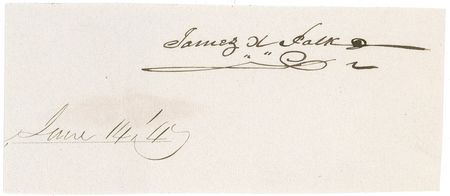 James K Polk
June 14, '49